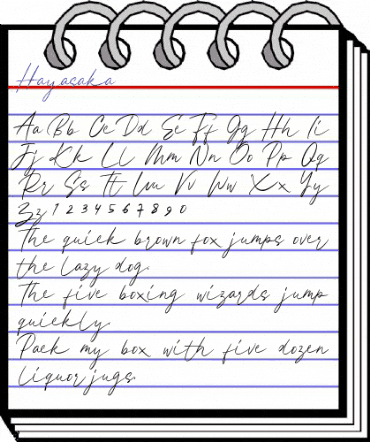 Hayasaka
Aa Bb Cc Dd Ee Ff Gg Hh Ii
Jj Kk Ll Mm Nn Oo Pp Qq
Rr Ss Tt Uu Vv Ww Xx Yy
Zz 1 2 3 4 5 6 7 8 9 0
The quick brown fox jumps over
the lazy dog.
The five boxing wizards jump
quickly.
Pack my box with five dozen
liquor jugs.